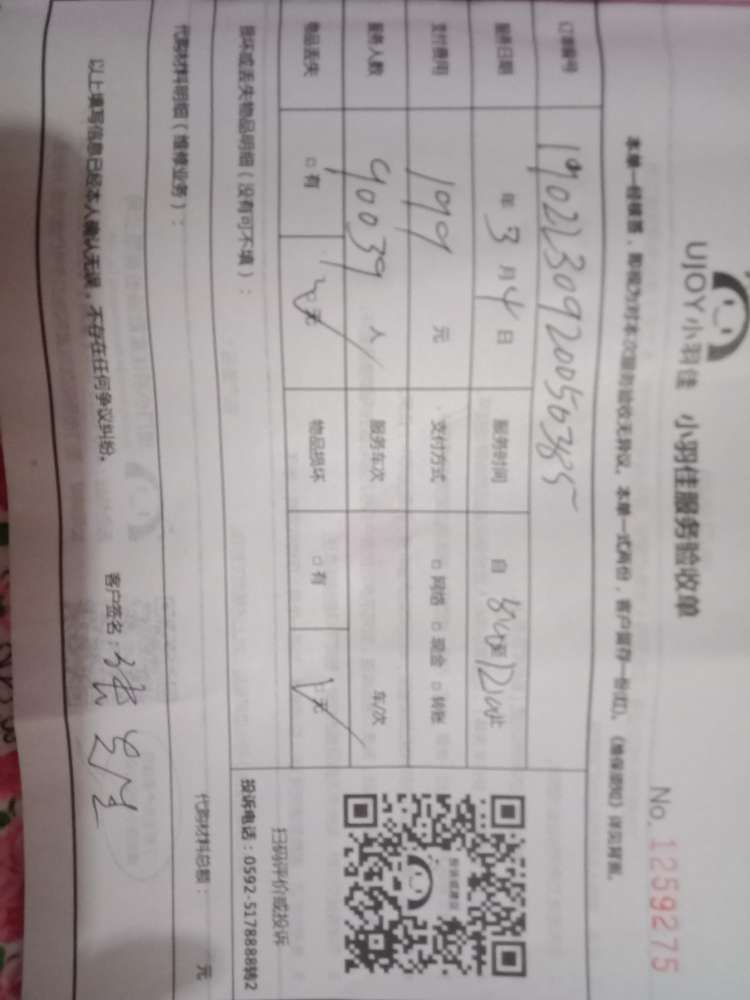 UJOY小羽佳 小羽佳服务验收单
No. 1259275
本单一经核签，即视为对本次服务验收无异议。本单一式两份，客户留存一份(红)。《维保须知》详见背面。
订单编号 190223092005056385
服务日期 年 3 月 4 日 服务时间 自
支付费用 199 元 支付方式 □网络 □现金 □转账
服务人数 90039 人 服务车次 车/次
物品丢失 □有 □无 物品损坏 □有 □无
损坏或丢失物品明细（没有可不填）：
扫码评价或投诉
投诉电话：0592-5178888转2
代购材料明细（维修业务）：
代购材料总额： 元
以上填写信息已经本人确认无误，不存在任何争议纠纷。 客户签名：